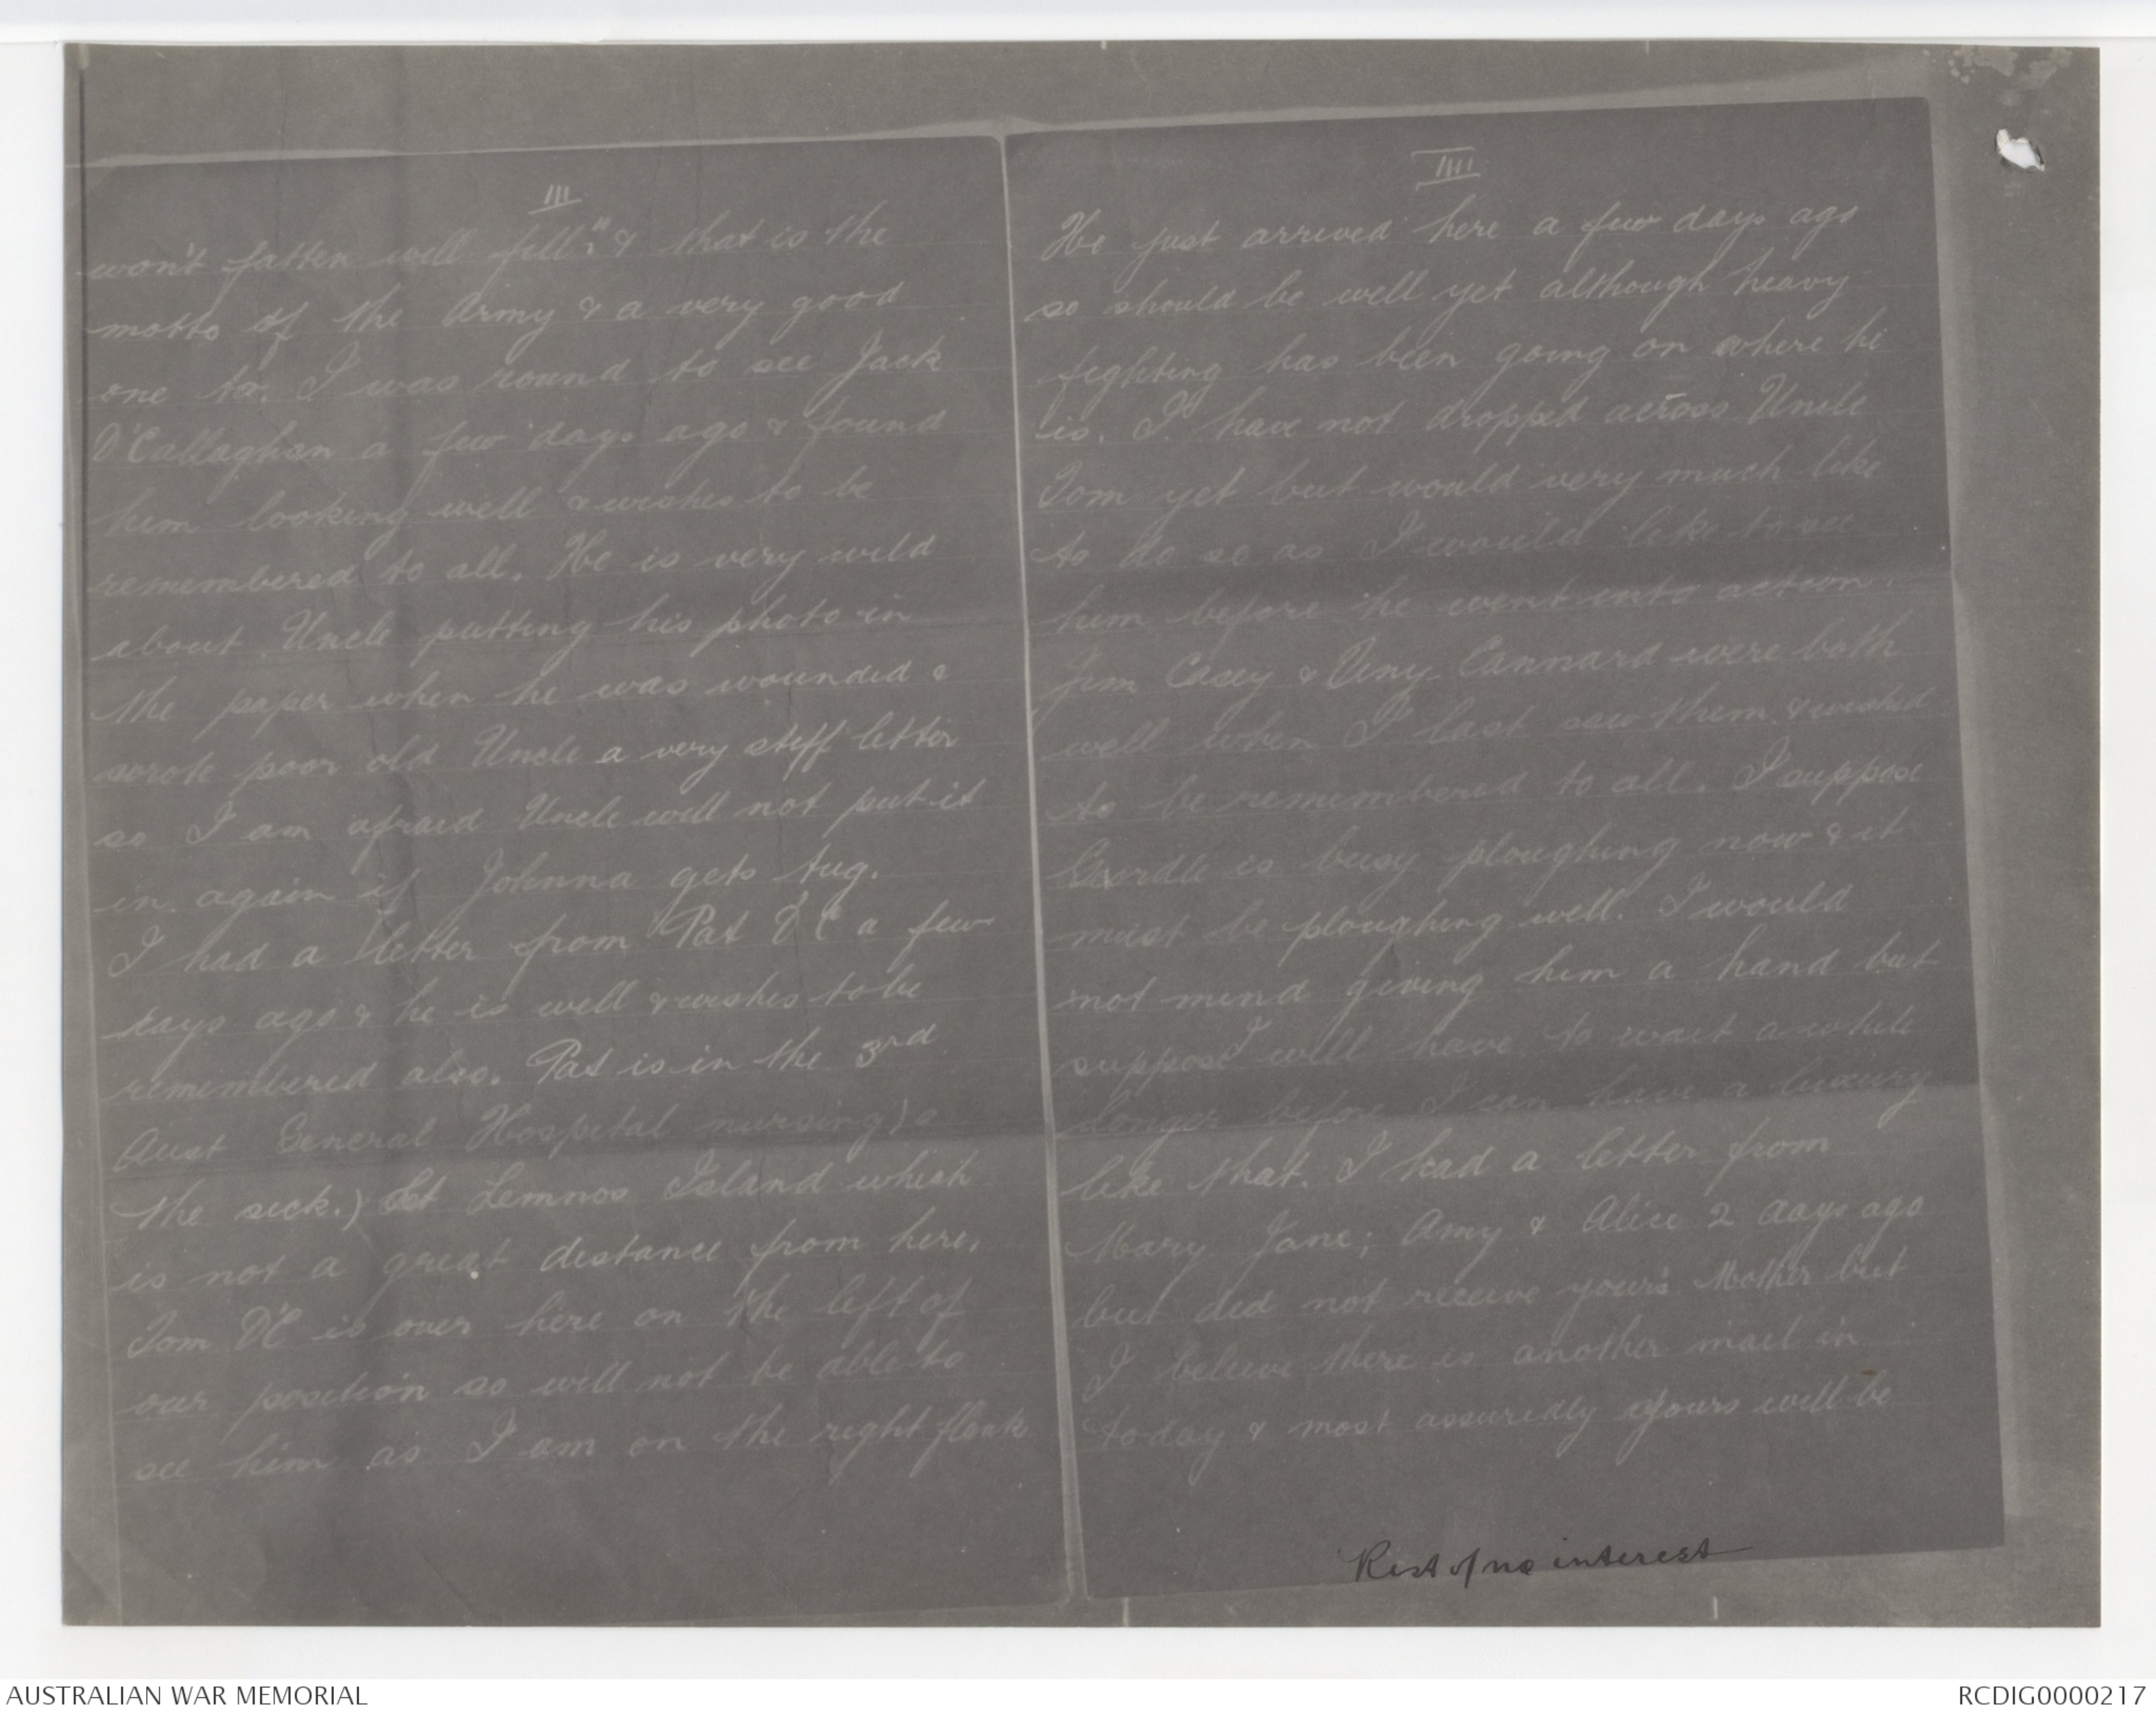 III
won't fatten will fill." & that is the
motto of the Army & a very good
one to. I was round to see Jack
O'Callaghan a few days ago & found
him looking well & wishes to be
remembered to all. He is very wild
about Uncle putting his photo in
the paper when he was wounded &
wrote poor old Uncle a very stiff letter
so I am afraid Uncle will not put it
in again if Johnna gets
I had a letter from Pat O'C a few
days ago & he is well & wishes to be
remembered also. Pat is in the 3rd
Aust General Hospital nursing)
the sick.) at Lemnos Island which
is not a great distance from here.
Tom O'C is over here on the left of
our position so will not be able to
see him as I am on the right flank
IIII
He just arrived here a few days ago
so should be well yet although heavy
fighting has been going on where he
is. I have not dropped across Uncle
Tom yet but would very much like
to do so as I would like to see
him before he went into action.
Jim Casey & Cannard were both
well when I last saw them & wished
to be remembered to all. I suppose
is busy ploughing now & it
must be ploughing well. I would
not mind giving him a hand but
suppose I will have to wait a while
longer before I can have a luxury
like that. I had a letter from
Mary Jane; Amy & Alice 2 days ago
but did not receive your's Mother but
I believe there is another mail in
today & most assuredly yours will be
Rest of no interest
AUSTRALIAN WAR MEMORIAL
RCDIG0000217